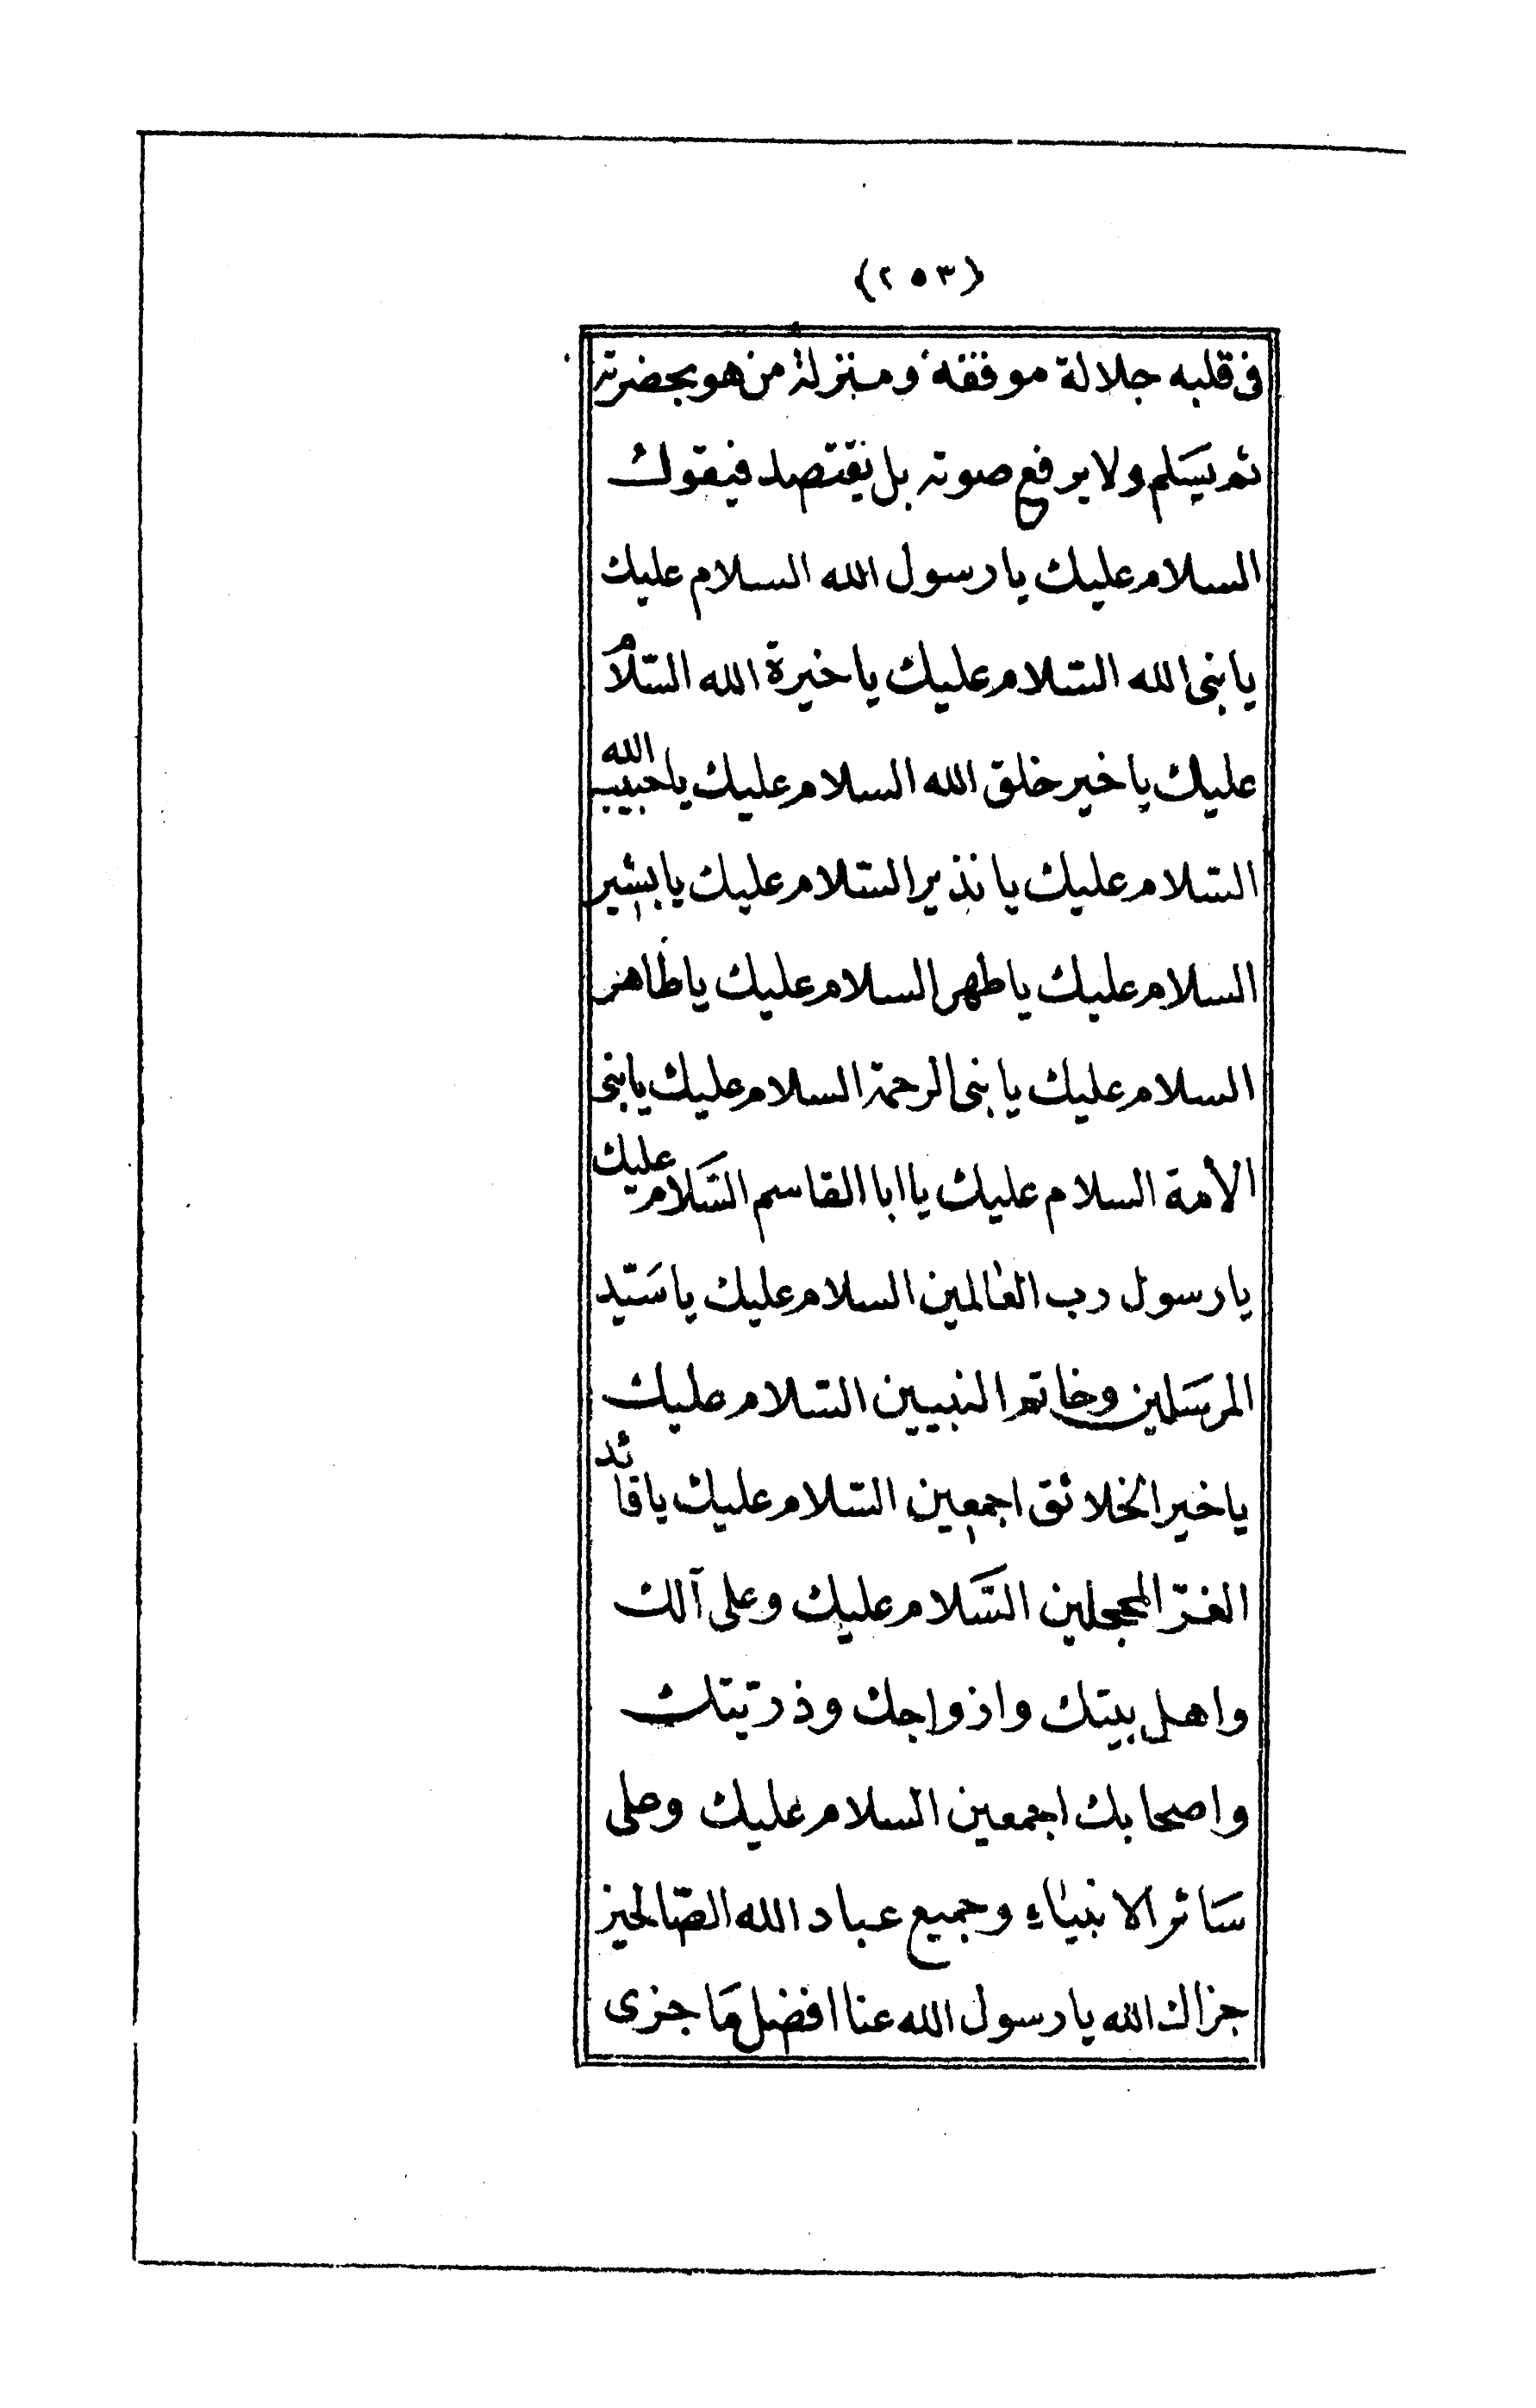 (٢٥٣)
فى قلبه جلالة موقفه ومنزلة من هو بحضرته
ثم يسلم ولا يرفع صوته بل يقتصد فيقول
السلام عليك يا رسول الله السلام عليك
يا نبى الله السّلام عليك يا خيرة الله السّلامُ
عليك يا خير خلق الله السلام عليك يا حبيب الله
السّلام عليك يا نذير السّلام عليك يا بشير
السلام عليك يا طهر السلام عليك يا ظاهر
السلام عليك يا نبى الرحمة السلام عليك يا نبى
الأمة السلام عليك يا ابا القاسم السَّلام عليك
يا رسول رب العالمين السلام عليك يا سَيّد
المرسَلين وخاتم النبيين السّلام عليك
يا خير الخلائق اجمعين السّلام عليك يا قائد
الغرّ المحجلين السَّلام عليك وعلى آلك
واهل بيتك وازواجك وذريّتك
واصحابك اجمعين السلام عليك وعلى
سَائر الانبياء وجميع عباد الله الصّالحين
جزاك الله يا رسول الله عنا افضل مَا جزى